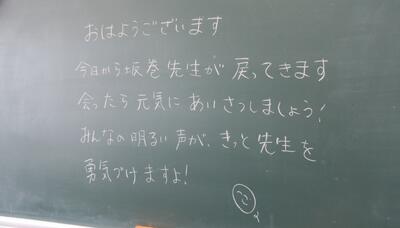 おはようございます
今日から坂巻先生が戻ってきます
会ったら元気にあいさつしましょう！
みんなの明るい声が、きっと先生を
勇気づけますよ！